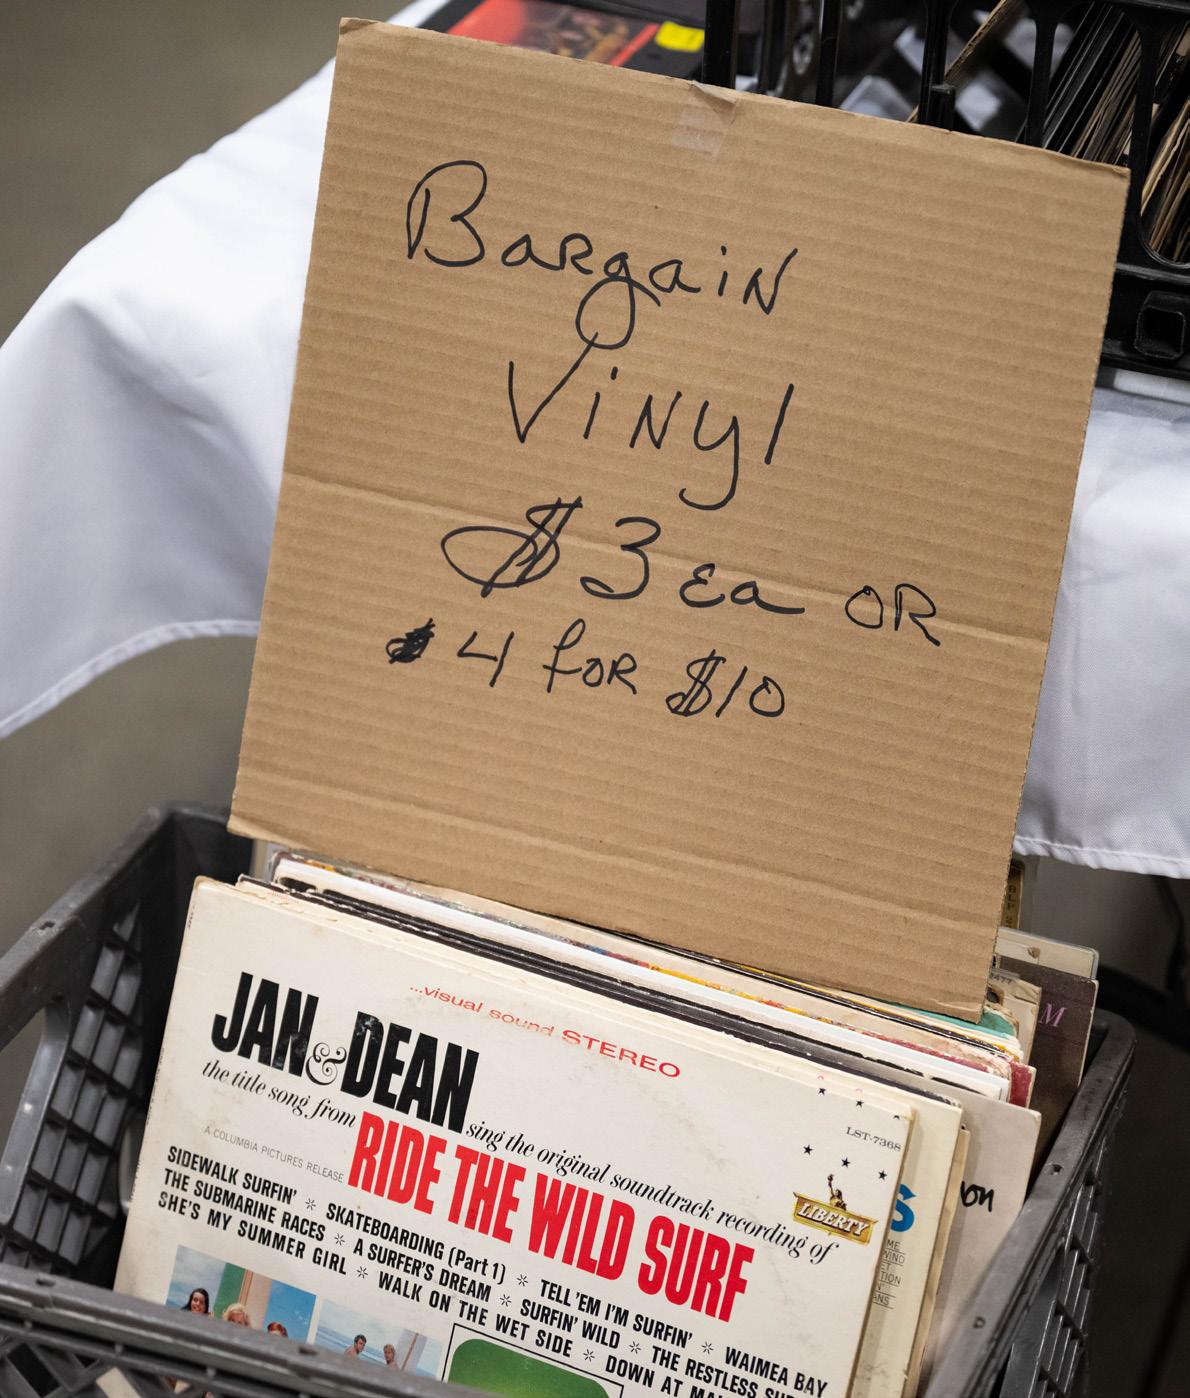 Bargain
Vinyl
$3 ea OR
4 for $10
...visual sound STEREO
JAN & DEAN
LST-7368
sing the original soundtrack recording of
the title song from
RIDE THE WILD SURF
A COLUMBIA PICTURES RELEASE
LIBERTY
SIDEWALK SURFIN' ✲ SKATEBOARDING (Part 1) ✲ TELL 'EM I'M SURFIN' ✲ WAIMEA BAY
THE SUBMARINE RACES ✲ A SURFER'S DREAM ✲ SURFIN' WILD ✲ THE RESTLESS
SHE'S MY SUMMER GIRL ✲ WALK ON THE WET SIDE ✲ DOWN AT
S
on
ME
WIND
ET
TION
ANS
M